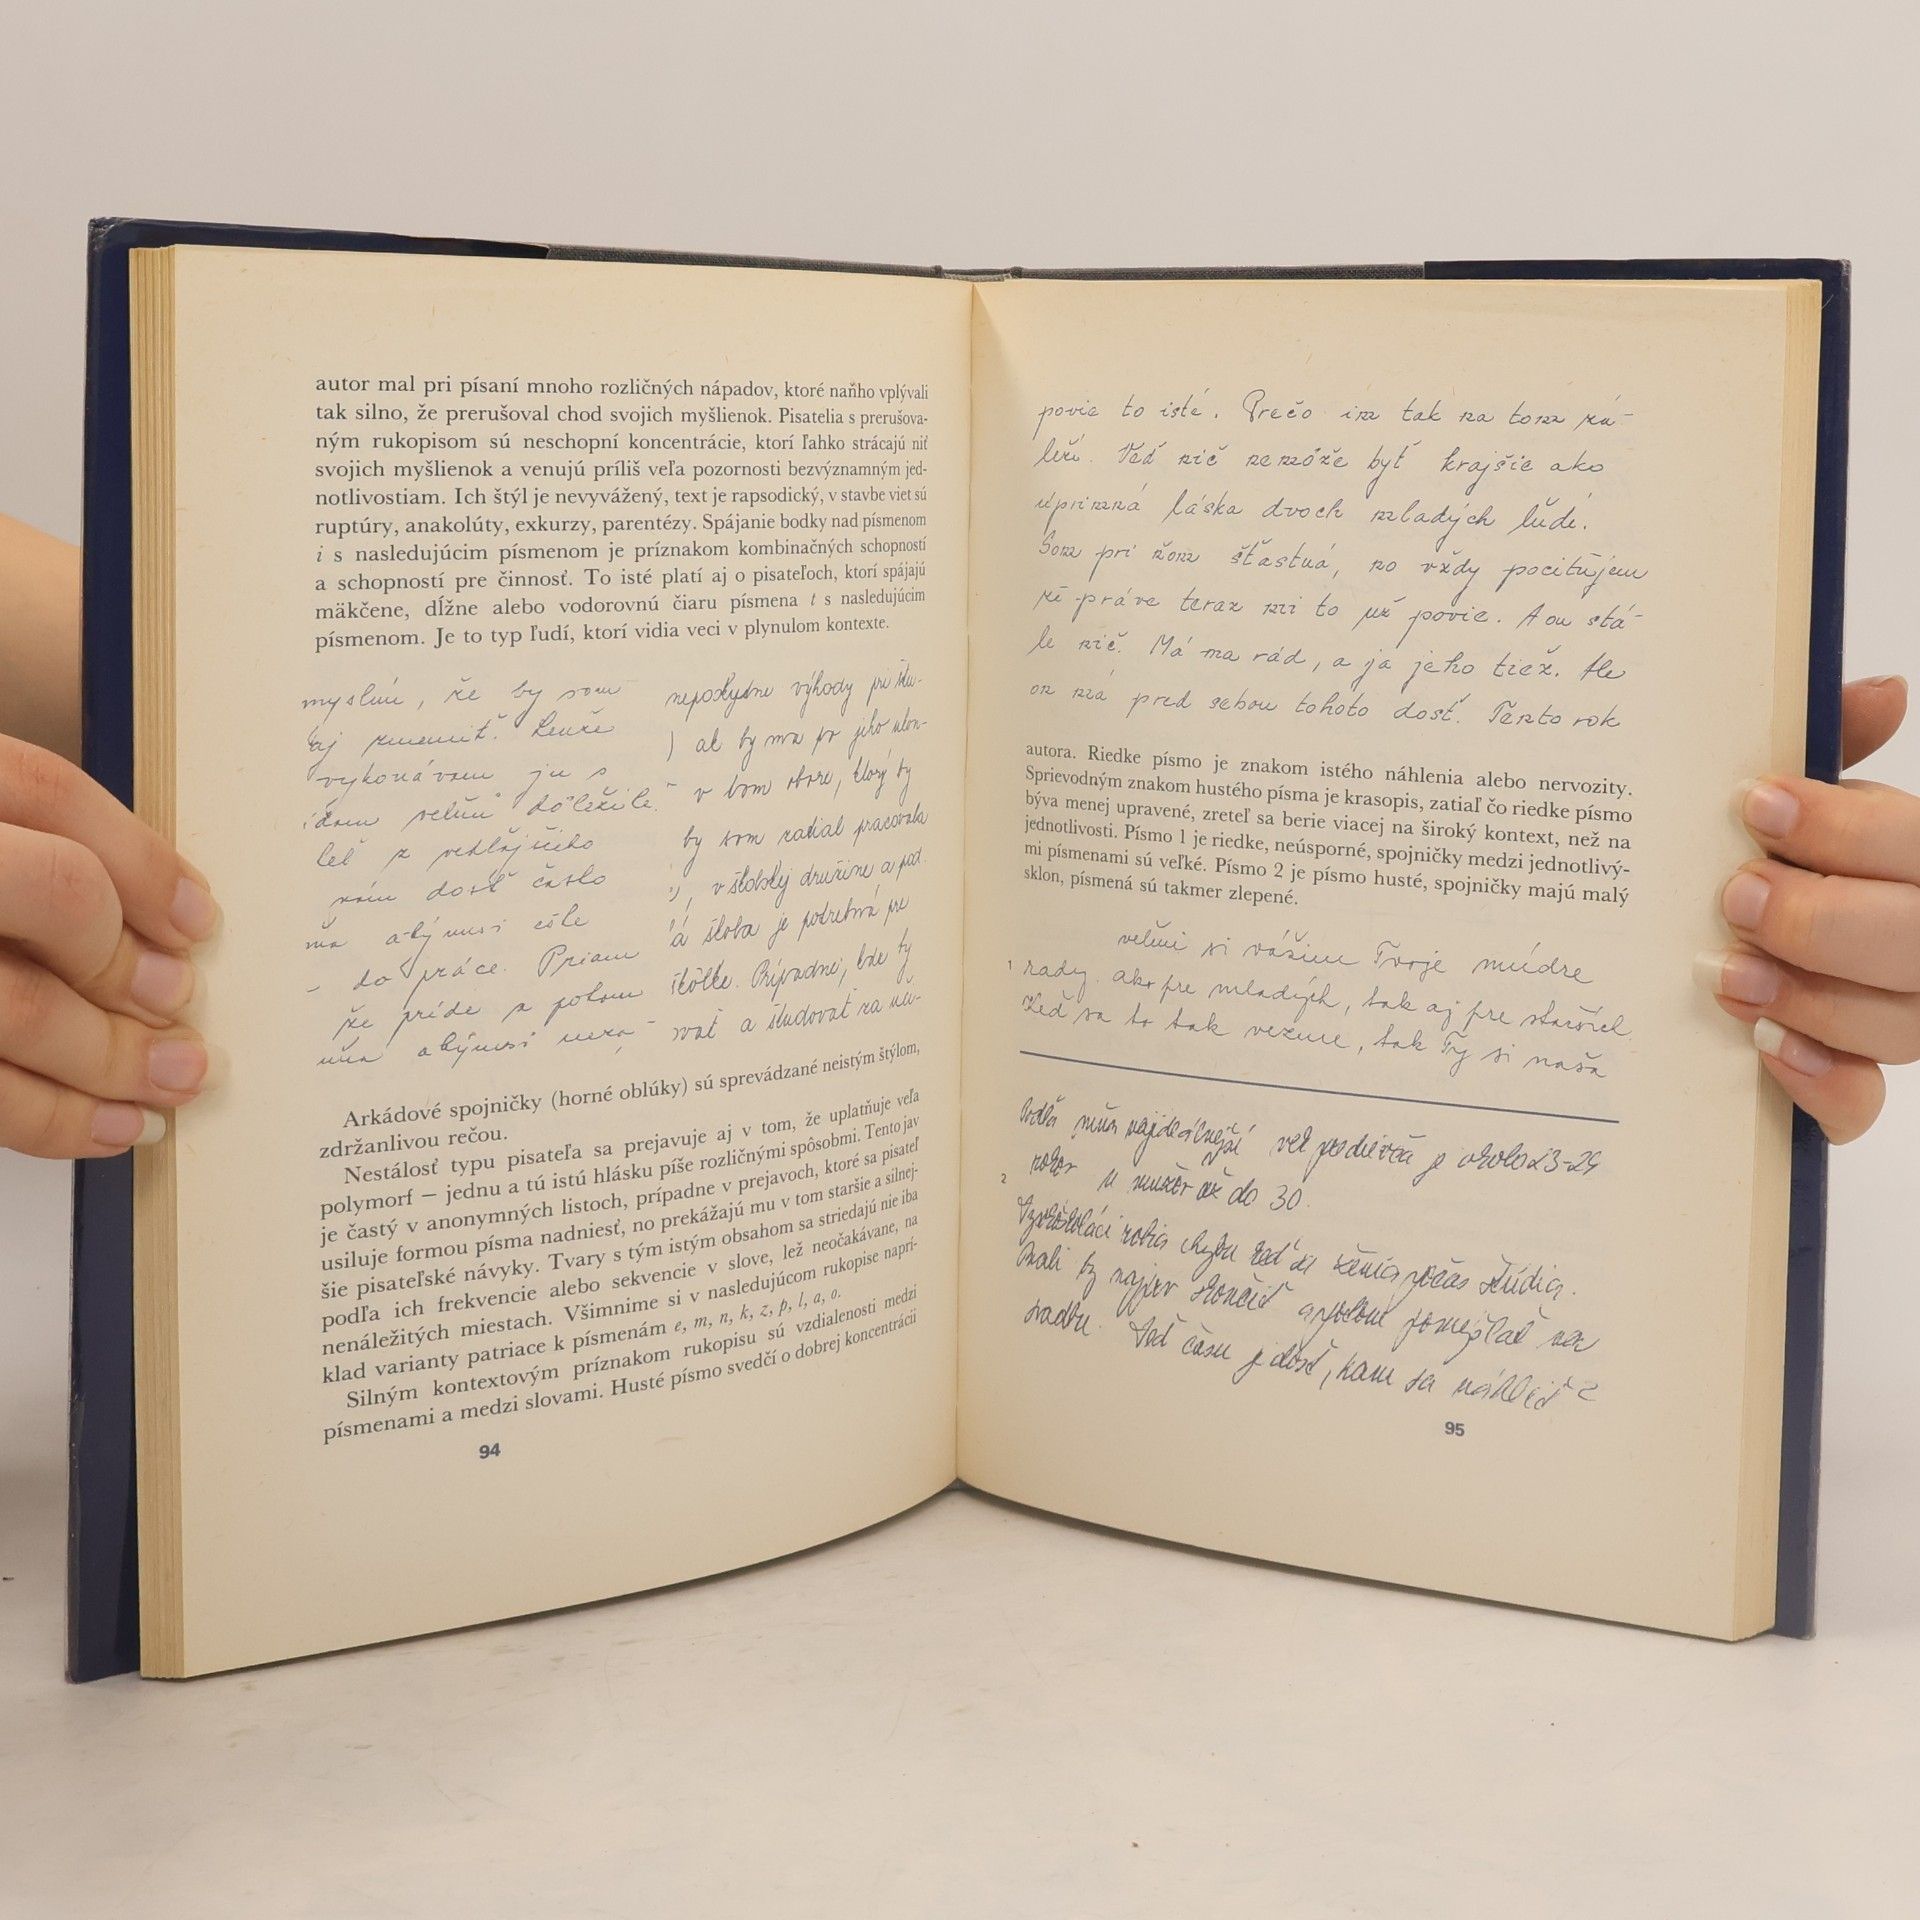 autor mal pri písaní mnoho rozličných nápadov, ktoré naňho vplývali
tak silno, že prerušoval chod svojich myšlienok. Pisatelia s prerušova-
ným rukopisom sú neschopní koncentrácie, ktorí ľahko strácajú niť
svojich myšlienok a venujú príliš veľa pozornosti bezvýznamným jed-
notlivostiam. Ich štýl je nevyvážený, text je rapsodický, v stavbe viet sú
ruptúry, anakolúty, exkurzy, parentézy. Spájanie bodky nad písmenom
i s nasledujúcim písmenom je príznakom kombinačných schopností
a schopností pre činnosť. To isté platí aj o pisateľoch, ktorí spájajú
mäkčene, dĺžne alebo vodorovnú čiaru písmena t s nasledujúcim
písmenom. Je to typ ľudí, ktorí vidia veci v plynulom kontexte.
myslím, že by som
aj zmeniť. Lenže
vykonávam ju s
veľmi dôležité.
z vedľajšieho
dosť často
aby mi ešte
do práce. Priam
že príde a potom
neposkytne výhody pri štu-
ak by ma po jeho ukon-
v tom obore, ktorý by
by som radial pracovala
v školskej družine a pod.
škola je potrebná pre
škôlke. Prípadne, kde by
a študovať na uči-
Arkádové spojničky (horné oblúky) sú sprevádzané neistým štýlom,
zdržanlivou rečou.
Nestálosť typu pisateľa sa prejavuje aj v tom, že uplatňuje veľa
polymorf — jednu a tú istú hlásku píše rozličnými spôsobmi. Tento jav
je častý v anonymných listoch, prípadne v prejavoch, ktoré sa pisateľ
usiluje formou písma nadniesť, no prekážajú mu v tom staršie a silnej-
šie pisateľské návyky. Tvary s tým istým obsahom sa striedajú nie iba
podľa ich frekvencie alebo sekvencie v slove, lež neočakávane, na
nenáležitých miestach. Všimnime si v nasledujúcom rukopise naprí-
klad varianty patriace k písmenám e, m, n, k, z, p, l, a, o.
Silným kontextovým príznakom rukopisu sú vzdialenosti medzi
písmenami a medzi slovami. Husté písmo svedčí o dobrej koncentrácii
94
povie to isté. Prečo im tak na tom zá-
leží. Veď nič nemôže byť krajšie ako
úprimná láska dvoch mladých ľudí.
Som pri ňom šťastná, no vždy pociťujem
že práve teraz mi to už povie. A on stá-
le nič. Má ma rád, a ja jeho tiež. Ale
on má pred sebou tohoto dosť. Tento rok
autora. Riedke písmo je znakom istého náhlenia alebo nervozity.
Sprievodným znakom hustého písma je krasopis, zatiaľ čo riedke písmo
býva menej upravené, zreteľ sa berie viacej na široký kontext, než na
jednotlivosti. Písmo 1 je riedke, neúsporné, spojničky medzi jednotlivý-
mi písmenami sú veľké. Písmo 2 je písmo husté, spojničky majú malý
sklon, písmená sú takmer zlepené.
veľmi si vážime Tvoje múdre
1 rady, ako pre mladých, tak aj pre starších.
Keď sa to tak vezme, tak Ty si naša
Podľa mňa najideálnejší vek pre dievča je okolo 23-24
2 rokov u mužov až do 30.
Vysokoškoláci robia chybu keď sa ženia počas štúdia.
Mali by najprv skončiť a potom pomýšľať na
svadbu. Veď času je dosť, kam sa náhliť?
95